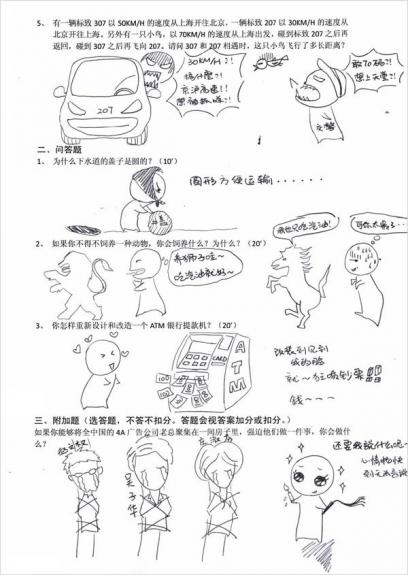 5、 有一辆标致 307 以 50KM/H 的速度从上海开往北京，一辆标致 207 以 30KM/H 的速度从
北京开往上海，另外有一只小鸟，以 70KM/H 的速度从上海出发，碰到标致 207 之后再
返回，碰到 307 之后再飞向 207。请问 307 和 207 相遇时，这只小鸟飞行了多长距离？
30KM/H?!
搞什麼?!
京沪高速!!
想
敢70码?!
想上天堂?!
207
交警
二、问答题
1、 为什么下水道的盖子是圆的？（10′）
圆形方便运输······
2、 如果你不得不饲养一种动物，你会饲养什么？为什么？（20′）
养狮子哇~
吃汽油就好~
我也只吃汽油!
可你太
3、 你怎样重新设计和改造一个 ATM 银行提款机？（20′）
CARD
ATM
100
改装到见到
我的脸
就~狂喷钞票
钱~~~
三、附加题（选答题，不答不扣分。答题会视答案加分或扣分。）
如果你能够将全中国的 4A 广告公司老总聚集在一间房子里，强迫他们做一件事，你会做什
么？
还要我说什么呢~
心情愉快